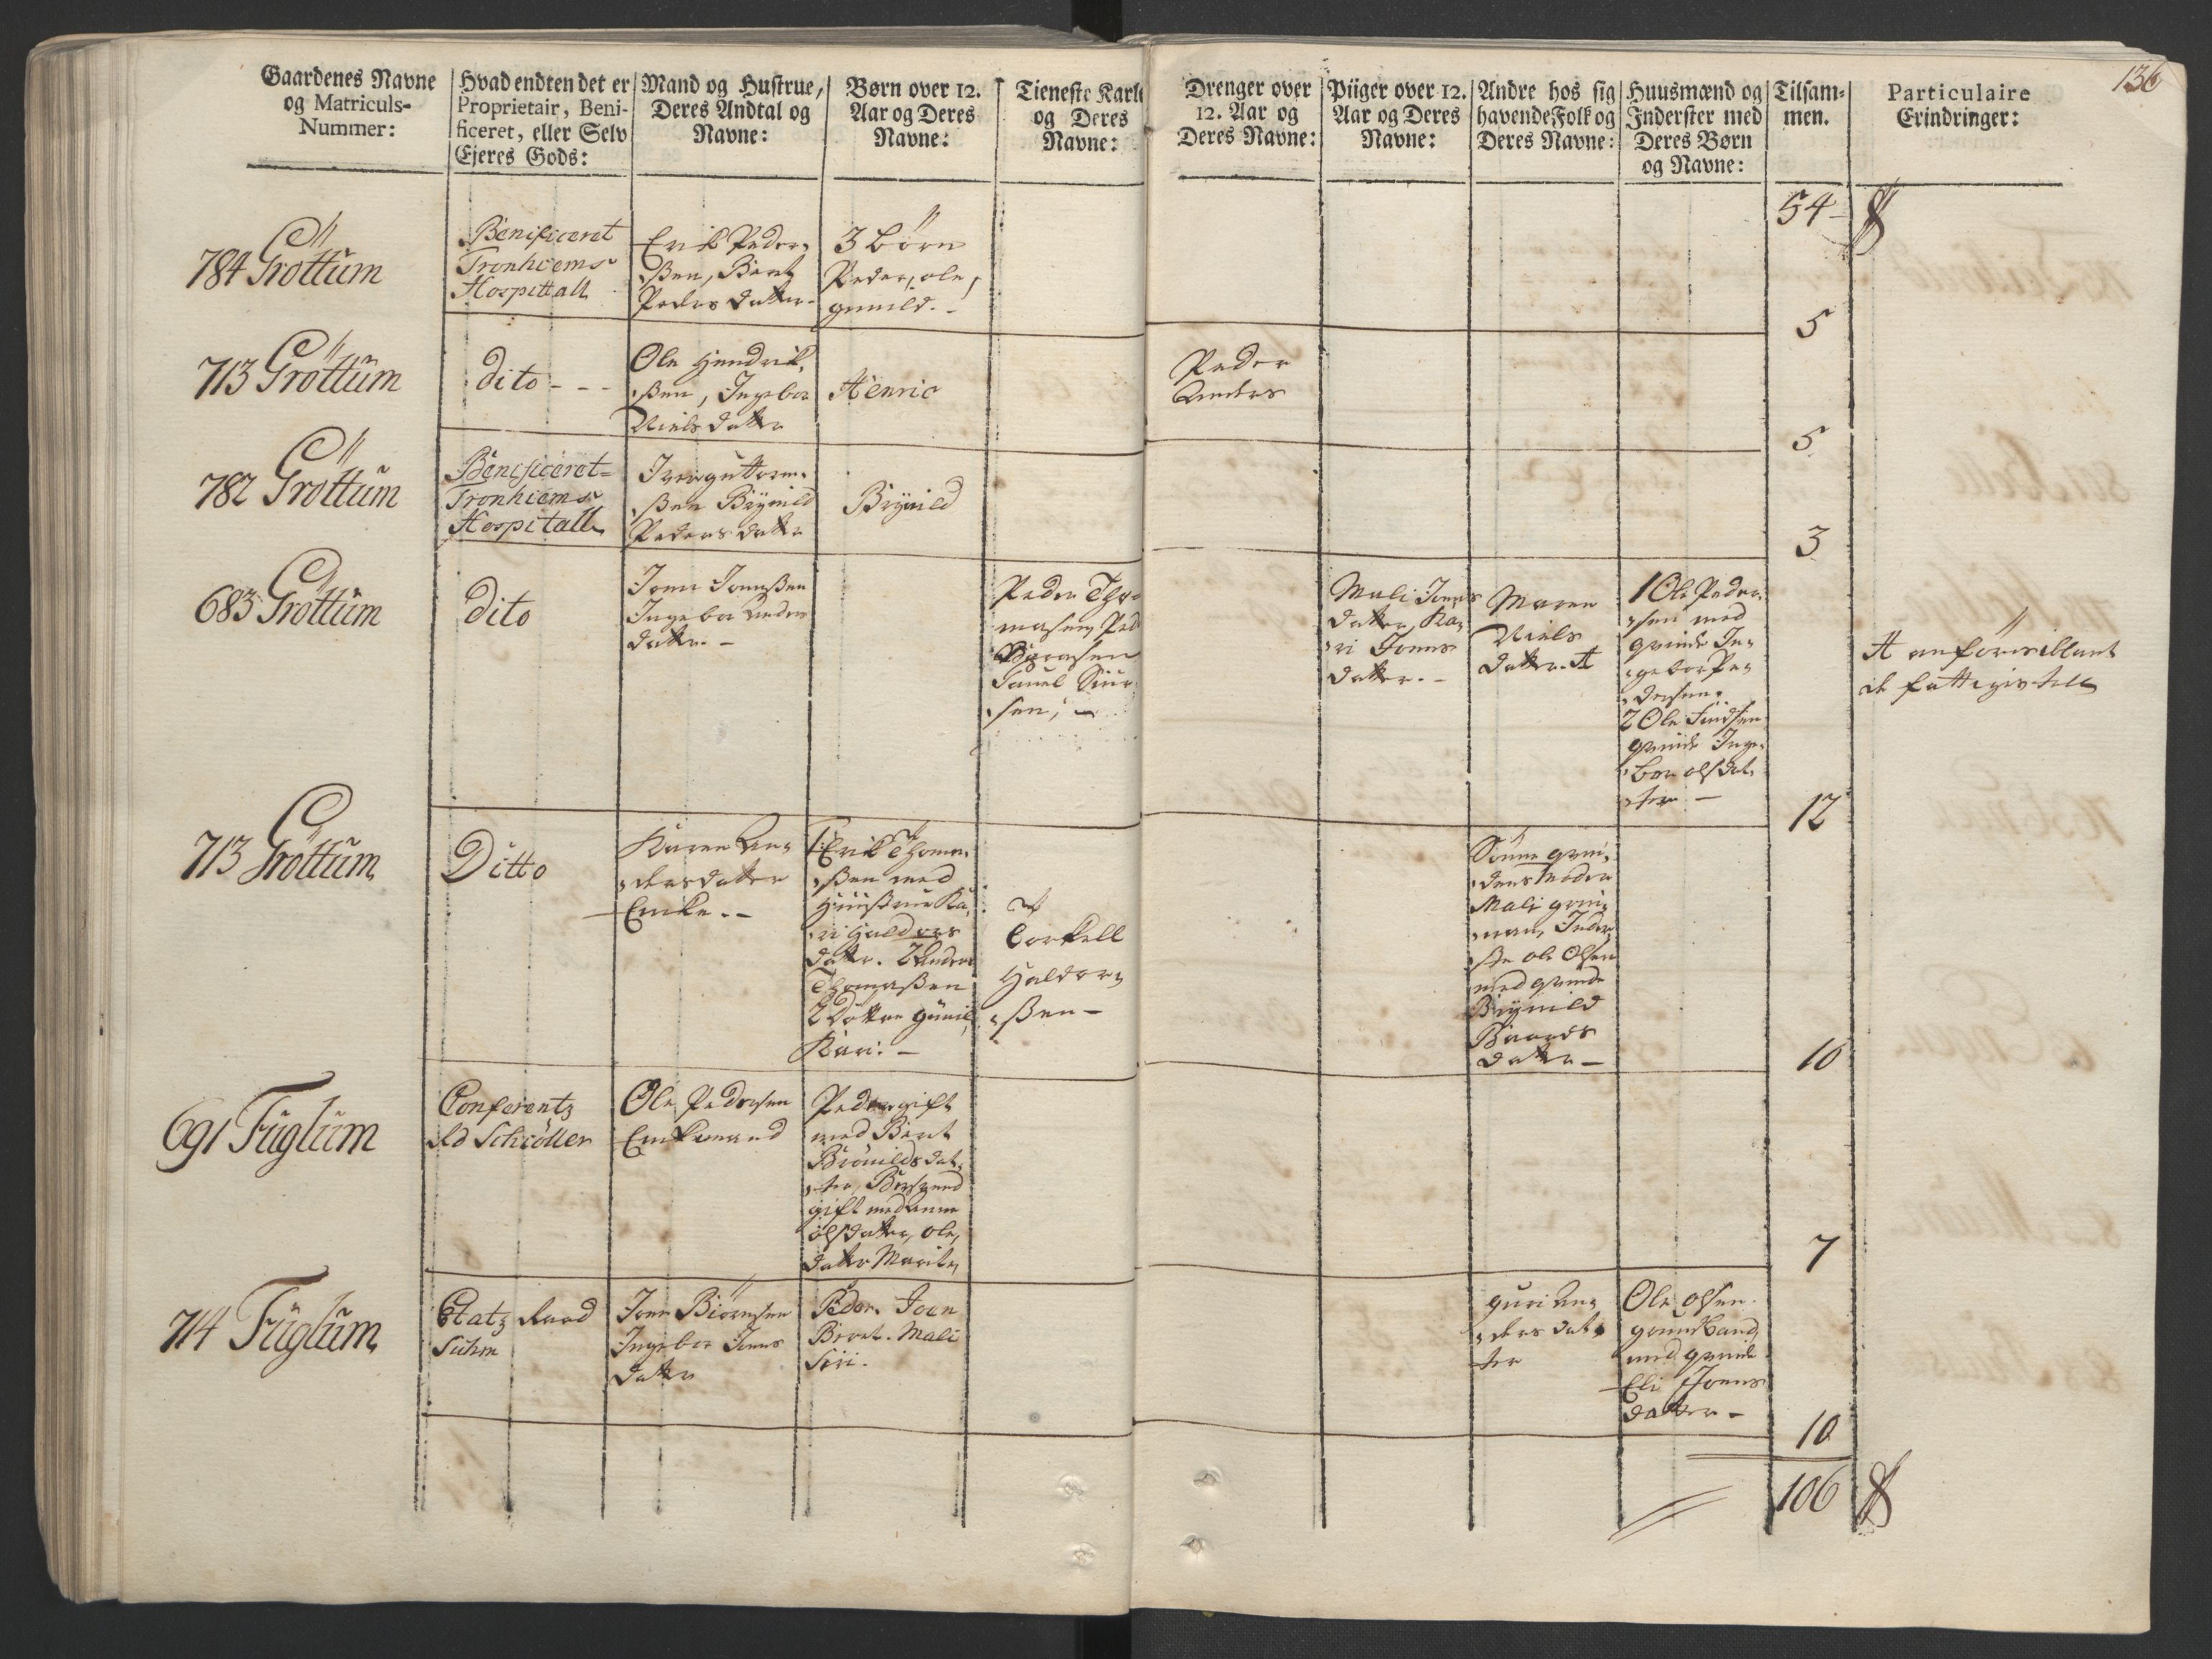 136
Gaardenes Navne
og Matriculs-
Nummer:
Hvad endten det er
Proprietair, Beni-
ficeret, eller Selv
Ejeres Gods:
Mand og Hustrue,
Deres Andtal og
Navne:
Børn over 12.
Aar og Deres
Navne:
Tieneste Karle
og Deres
Navne:
Drenger over
12. Aar og
Deres Navne:
Piiger over 12.
Aar og Deres
Navne:
Andre hos sig
havende Folk og
Deres Navne:
Huusmænd og
Inderster med
Deres Børn
og Navne:
Tilsam-
men.
Particulaire
Erindringer:
54
784 Gröttum
Benificeret
Tronhiems
Hospitall
Erik Peder,
ßen, Berit
Peders datter
3 börn
Peder, ole,
gunild.
5
713 Gröttum
dito - - -
Ole Hendrik,
ßen, Ingebor
Niels datter
Henric
Peder
Anders
5
782 Gröttum
Benificeret
Tronhiems
Hospitall
Iver guttorm,
ßen Brynild
Peders datter
Brynild
3
683 Gröttum
dito
Jonn Jonnßen
Ingebor Anders
datter. -
Peder Tho-
masen, Ped
Siur
sen, -
Mali Jonns
datter, Ka,
ri Jonns
datter. -
Maren
Niels
datter. A
1 Ole Peder,
sen med
qvinde In,
gebor Pe,
2 Ole
qvinde Inge,
bor olsdat,
ter -
A
12
713 Gröttum
Ditto
Karen An,
dersdatter
Enke. -
1 Erik Thoma,
ßen med
Hüüstrue Ka,
ri Haldors
datter. 2 Anders
Thomaßen
2 döttre günil,
Kari. -
Torkell
Haldor,
ßen -
dens moder
Mali
ole Olsen
med qvinde
Brynild
Baards
datter -
10
691 Füglum
Conferentz
Rd Schiöller
Ole Pedersen
Enkemand
Peder gift
med Berit
dat,
ter,
gift med anne
olsdatter, ole,
datter Marit,
7
714 Füglum
Etatz Raad
Suhm
Jonn Biörnsen
Ingebor Jonns
datter
Peder. Joen
Beret. Mali
Siri.
guri An,
ders dat,
ter
Ole olsen
med qvinde
Eli Joenns
datter -
10
106